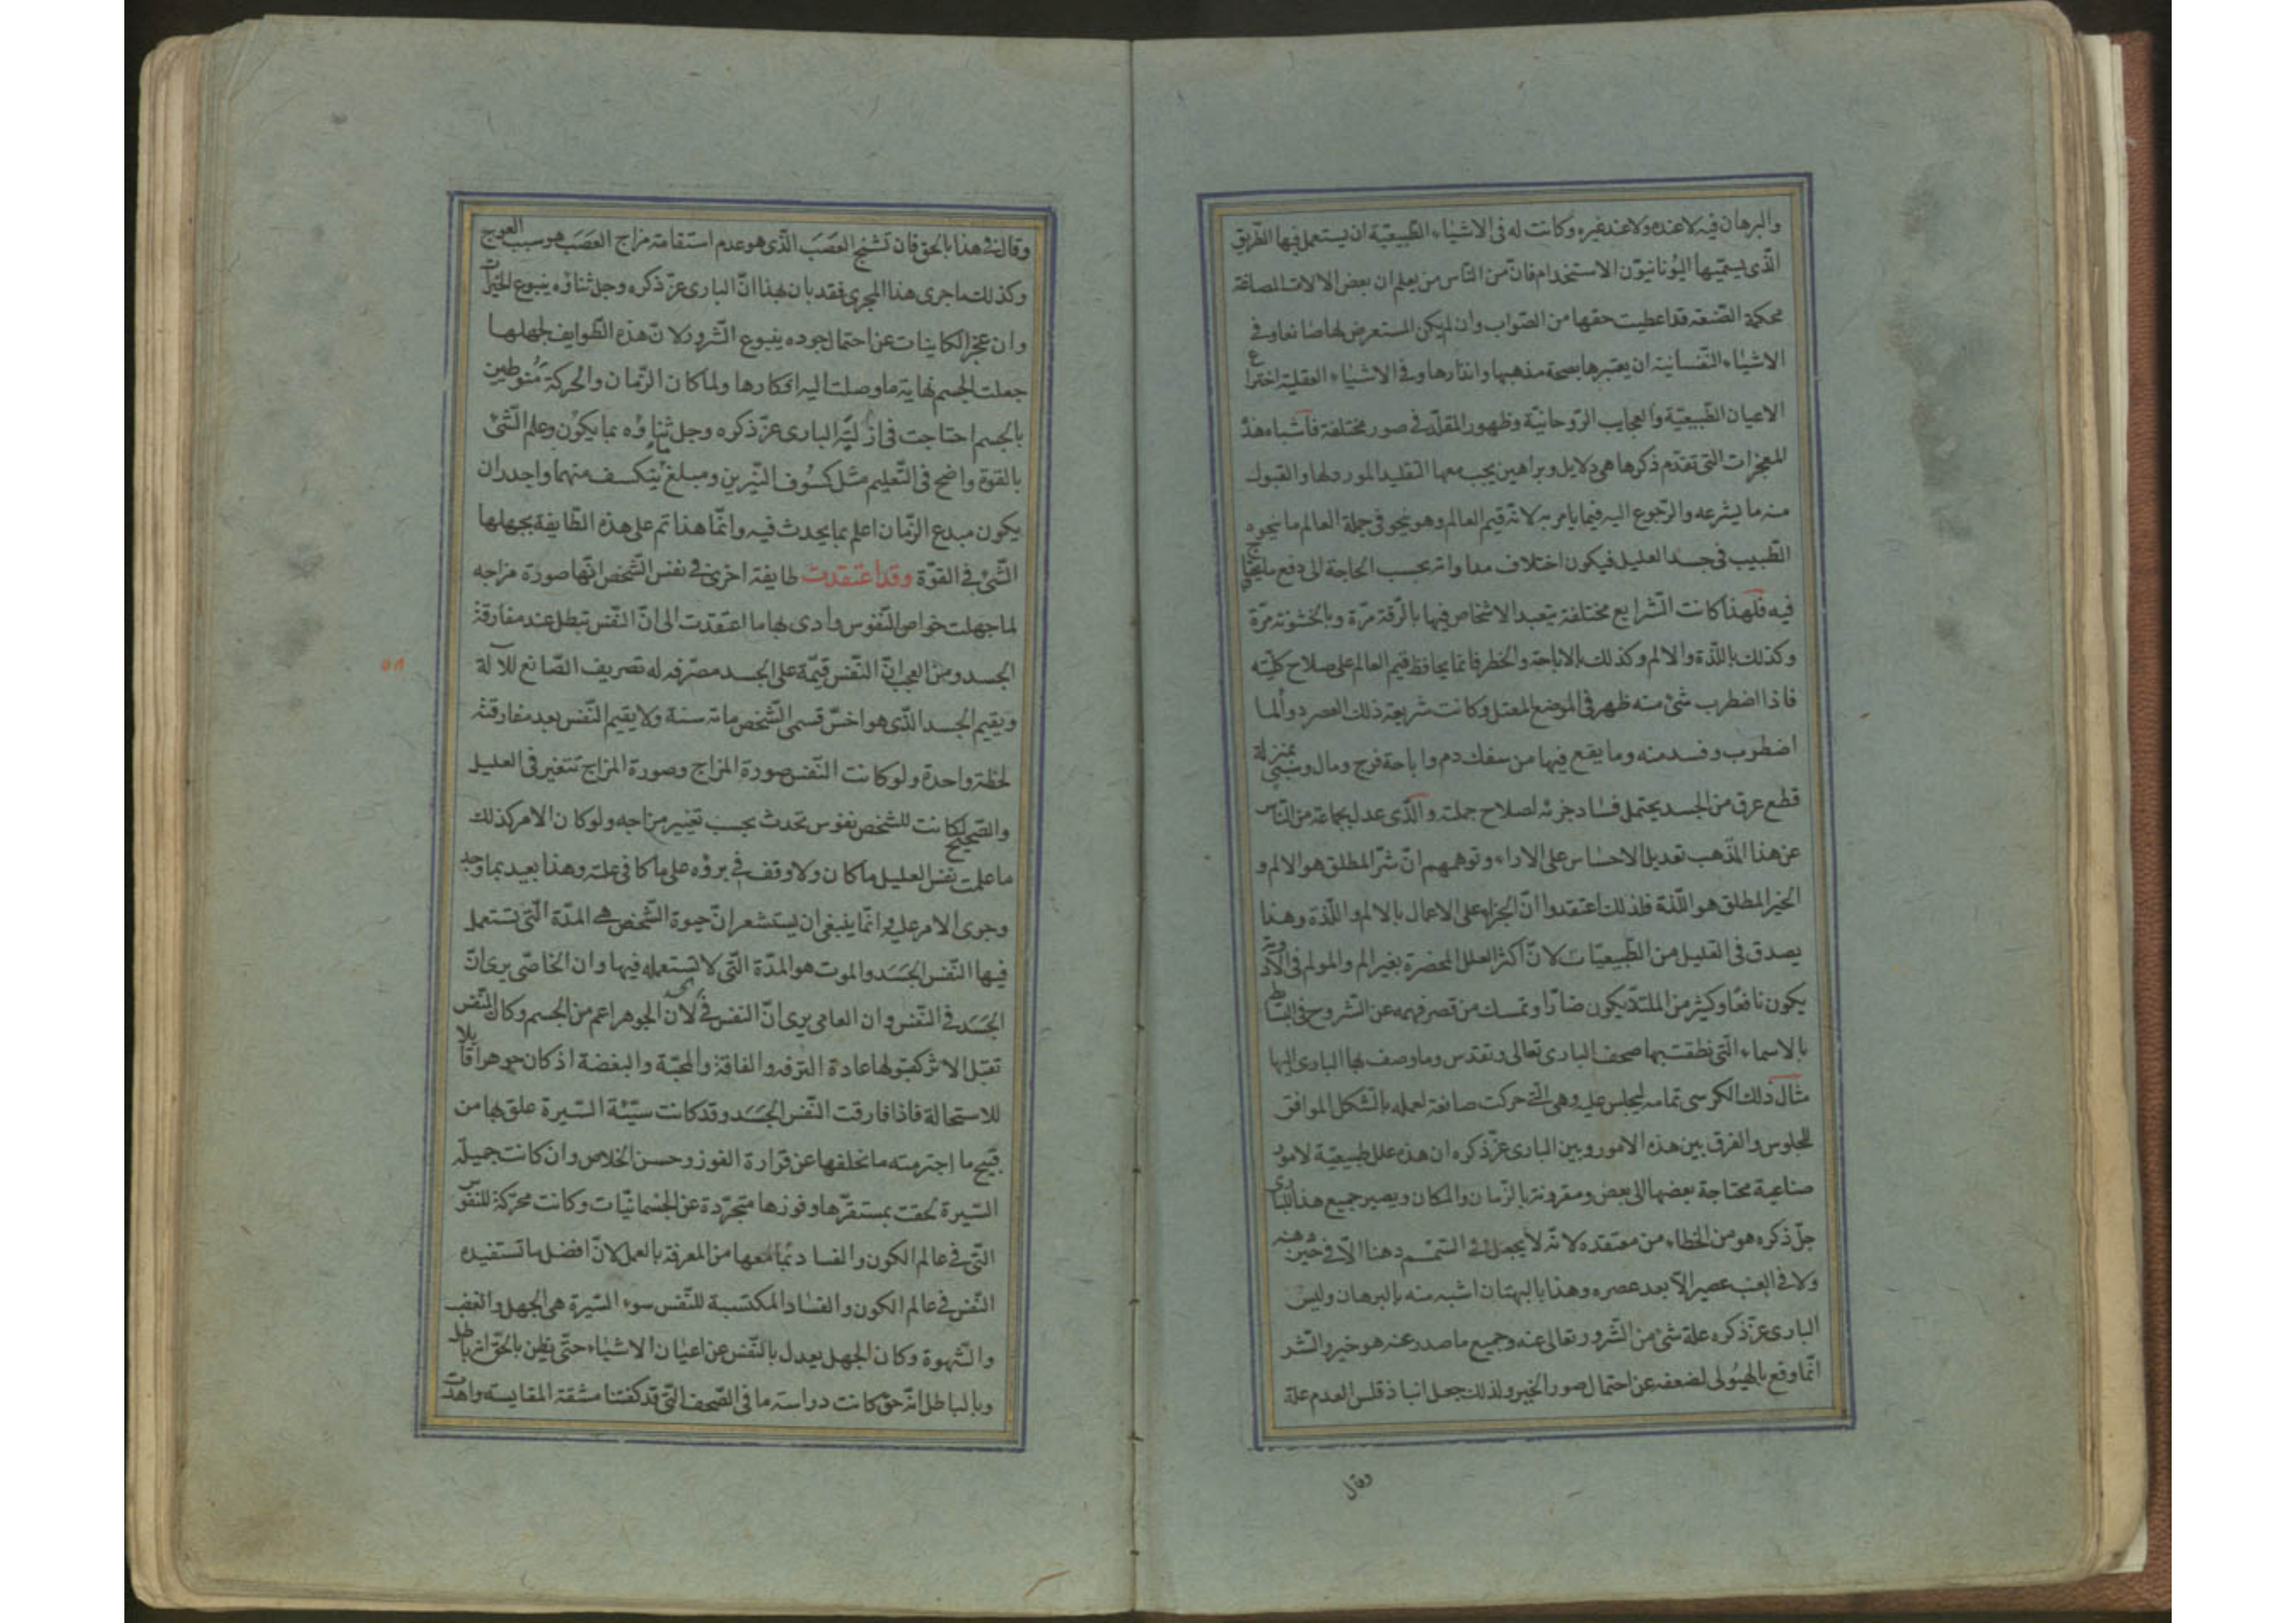 والبرهان فيه لا عنده ولا عند غيره وكانت له فى الاشياء الطبيعية ان يستعمل فيها الطريق
الذى يسميها اليونانيون الاستخدام فان من الناس من يعلم ان بعض الالات المصاغة
محكمة الصنعه قد اعطيت حقها من الصواب وان لم يكن المستعرض لها صانعا وفى
الاشياء النفسانية ان يعتبرها بصحة مذهبها وانذارها وفى الاشياء العقلية اختراع
الاعيان الطبيعية والعجايب الروحانية وظهور المقلد فى صور مختلفة فاشباه هذه
المعجزات التى تقدم ذكرها هى دلايل وبراهين يجب معها التقليد الموردها والقبول
منه ما يشرعه والرجوع اليه فيما يامر به لانه قيم العالم وهو ينحو فى جملة العالم ما ينحوه
الطبيب فى جسد العليل فيكون اختلاف مداواته بحسب الحاجة الى دفع ما
فيه فلهذا كانت الشرايع مختلفة يتعبد الاشخاص فيها بالرقة مرة وبالخشونة مرة
وكذلك باللذة والالم وكذلك بالاباحة والحظر فانما يحافظ قيم العالم على صلاح كليته
فاذا اضطرب شئ منه ظهر فى الموضع المعتل وكانت شريعة ذلك العصر دوآء لما
اضطرب وفسد منه وما يقع فيها من سفك دم واباحة فرج ومال وسبى بمنزلة
قطع عرق من الجسد يحتمل فساد جزئه لصلاح جملته والذى عدل بجماعة من الناس
عن هذا المذهب تعديل الاحساس على الاراء وتوهمهم ان شر المطلق هو الالم و
الخير المطلق هو اللذة فلذلك اعتقدوا ان الجزاء على الاعمال بالالم واللذة وهذا
يصدق فى القليل من الطبيعيات لان اكثر العلل المحضرة بغير الم والمولم فى الادوية
يكون نافعا وكثير من الملتذ يكون ضارا وتمسك من قصر فهمه عن الشروح فى
بالاسماء التى نطقت بها صحف البارى تعالى وتقدس وما وصف بها البارى الها
مثال ذلك الكرسى تمامه ليجلس عليه وهى التى حركت صانعه لعمله بالشكل الموافق
للجلوس والفرق بين هذه الامور وبين البارى عز ذكره ان هذه علل طبيعية لامور
صناعية محتاجة بعضها الى بعض ومقرونة بالزمان والمكان ويصير جميع هذا للبارى
جل ذكره هو من الخطاء من معتقده لانه لا يجعل فى السمسم دهنا الا فى حين دهنه
ولا فى العنب عصيرا الا بعد عصره وهذا بالبهتان اشبه منه بالبرهان وليس
البارى عز ذكره علة شئ من الشرور تعالى عنه وجميع ما صدر عنه هو خير والشر
انما وقع بالهيولى لضعفه عن احتمال صور الخير ولذلك جعل انباذقلس العدم علة
وقال
وقال فى هذا بالحق فان تشنج العصب الذى هو عدم استقامة مزاج العصب هو سبب العوج
وكذلك ما جرى هذا المجرى فقد بان بهذا ان البارى عز ذكره وجل ثناؤه ينبوع الخيرات
وان عجز الكاينات عن احتمال جوده ينبوع الشرور ولان هذه الطوايف لجهلها
جعلت الجسم نهاية ما وصلت اليه افكارها ولما كان الزمان والحركة منوطين
بالجسم احتاجت فى ازلية البارى عز ذكره وجل ثناؤه بما يكون وعلم الشئ
بالقوة واضح فى التعليم مثل كسوف النيرين ومبلغ ما ينكسف منهما واجدر ان
يكون مبدع الزمان اعلم بما يحدث فيه وانما هذا تم على هذه الطايفة بجهلها
الشئ فى القوة وقد اعتقدت طايفة اخرى فى نفس الشخص انها صورة مزاجه
لما جهلت خواص النفوس وادى بها ما اعتقدت الى ان النفس تبطل عند مفارقة
الجسد ومن العجب ان النفس قيمة على الجسد مصرفه له تصريف الصانع للآلة
ويقيم الجسد الذى هو اخس قسمى الشخص مائة سنة ولا يقيم النفس بعد مفارقته
لحظة واحدة ولو كانت النفس صورة المزاج وصورة المزاج تتغير فى العليل
والصحيح لكانت للشخص نفوس تحدث بحسب تغيير مزاجه ولو كان الامر كذلك
ما علمت نفس العليل ما كان ولا وقف فى برؤه على ما كا فى علته وهذا بعيد بما وجد
وجرى الامر عليه وانما ينبغى ان يستشعر ان حيوة الشخص هى المدة التى تستعمل
فيها النفس الجسد والموت هو المدة التى لا تستعمله فيها وان الخاصى يرى ان
الجسد فى النفس وان العامى يرى ان النفس فى الجسد لان الجوهر اعم من الجسم وكان النفس
تقبل الاثر كقبولها عادة الترفه والفاقة والمحبة والبغضة اذ كان جوهرا قابلا
للاستحالة فاذا فارقت النفس الجسد وقد كانت سيئة السيرة علق بها من
قبيح ما اجترمته ما تخلفها عن قرارة الفوز وحسن الخلاص وان كانت جميلة
السيرة لحقت بمستقرها وفوزها متجردة عن الجسمانيات وكانت محركة للنفوس
التى فى عالم الكون والفساد بما معها من المعرفة بالعمل لان افضل ما تستفيده
النفس فى عالم الكون والفساد المكتسبة للنفس سوء السيرة هى الجهل والغضب
والشهوة وكان الجهل يعدل بالنفس عن اعيان الاشياء حتى يظن بالحق انه باطل
وبالباطل انه حق كانت دراسة ما فى الصحف التى قد كفتنا مشقة المقايسه واهدت